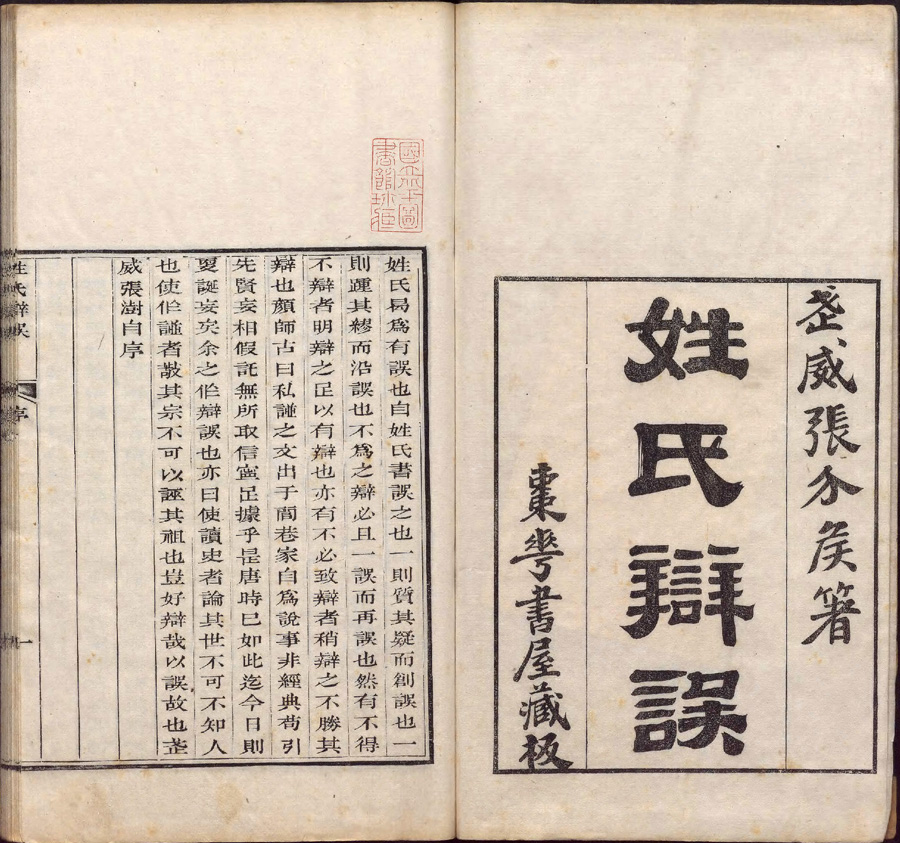 武威張介侯著
姓氏辯誤
棗華書屋藏板
國立北平圖
書館珍藏
姓氏曷爲有誤也自姓氏書誤之也一則質其疑而創誤也一
則踵其繆而沿誤也不爲之辯必且一誤而再誤也然有不得
不辯者明辯之足以有辯也亦有不必致辯者稍辯之不勝其
辯也顏師古曰私譜之文出于閭巷家自爲說事非經典苟引
先賢妄相假託無所取信寧足據乎是唐時已如此迄今日則
夏誕妄矣余之作辯誤也亦曰使讀史者論其世不可不知人
也使作譜者敬其宗不可以誣其祖也豈好辯哉以誤故也武
威張澍自序
姓氏辯誤
序
一